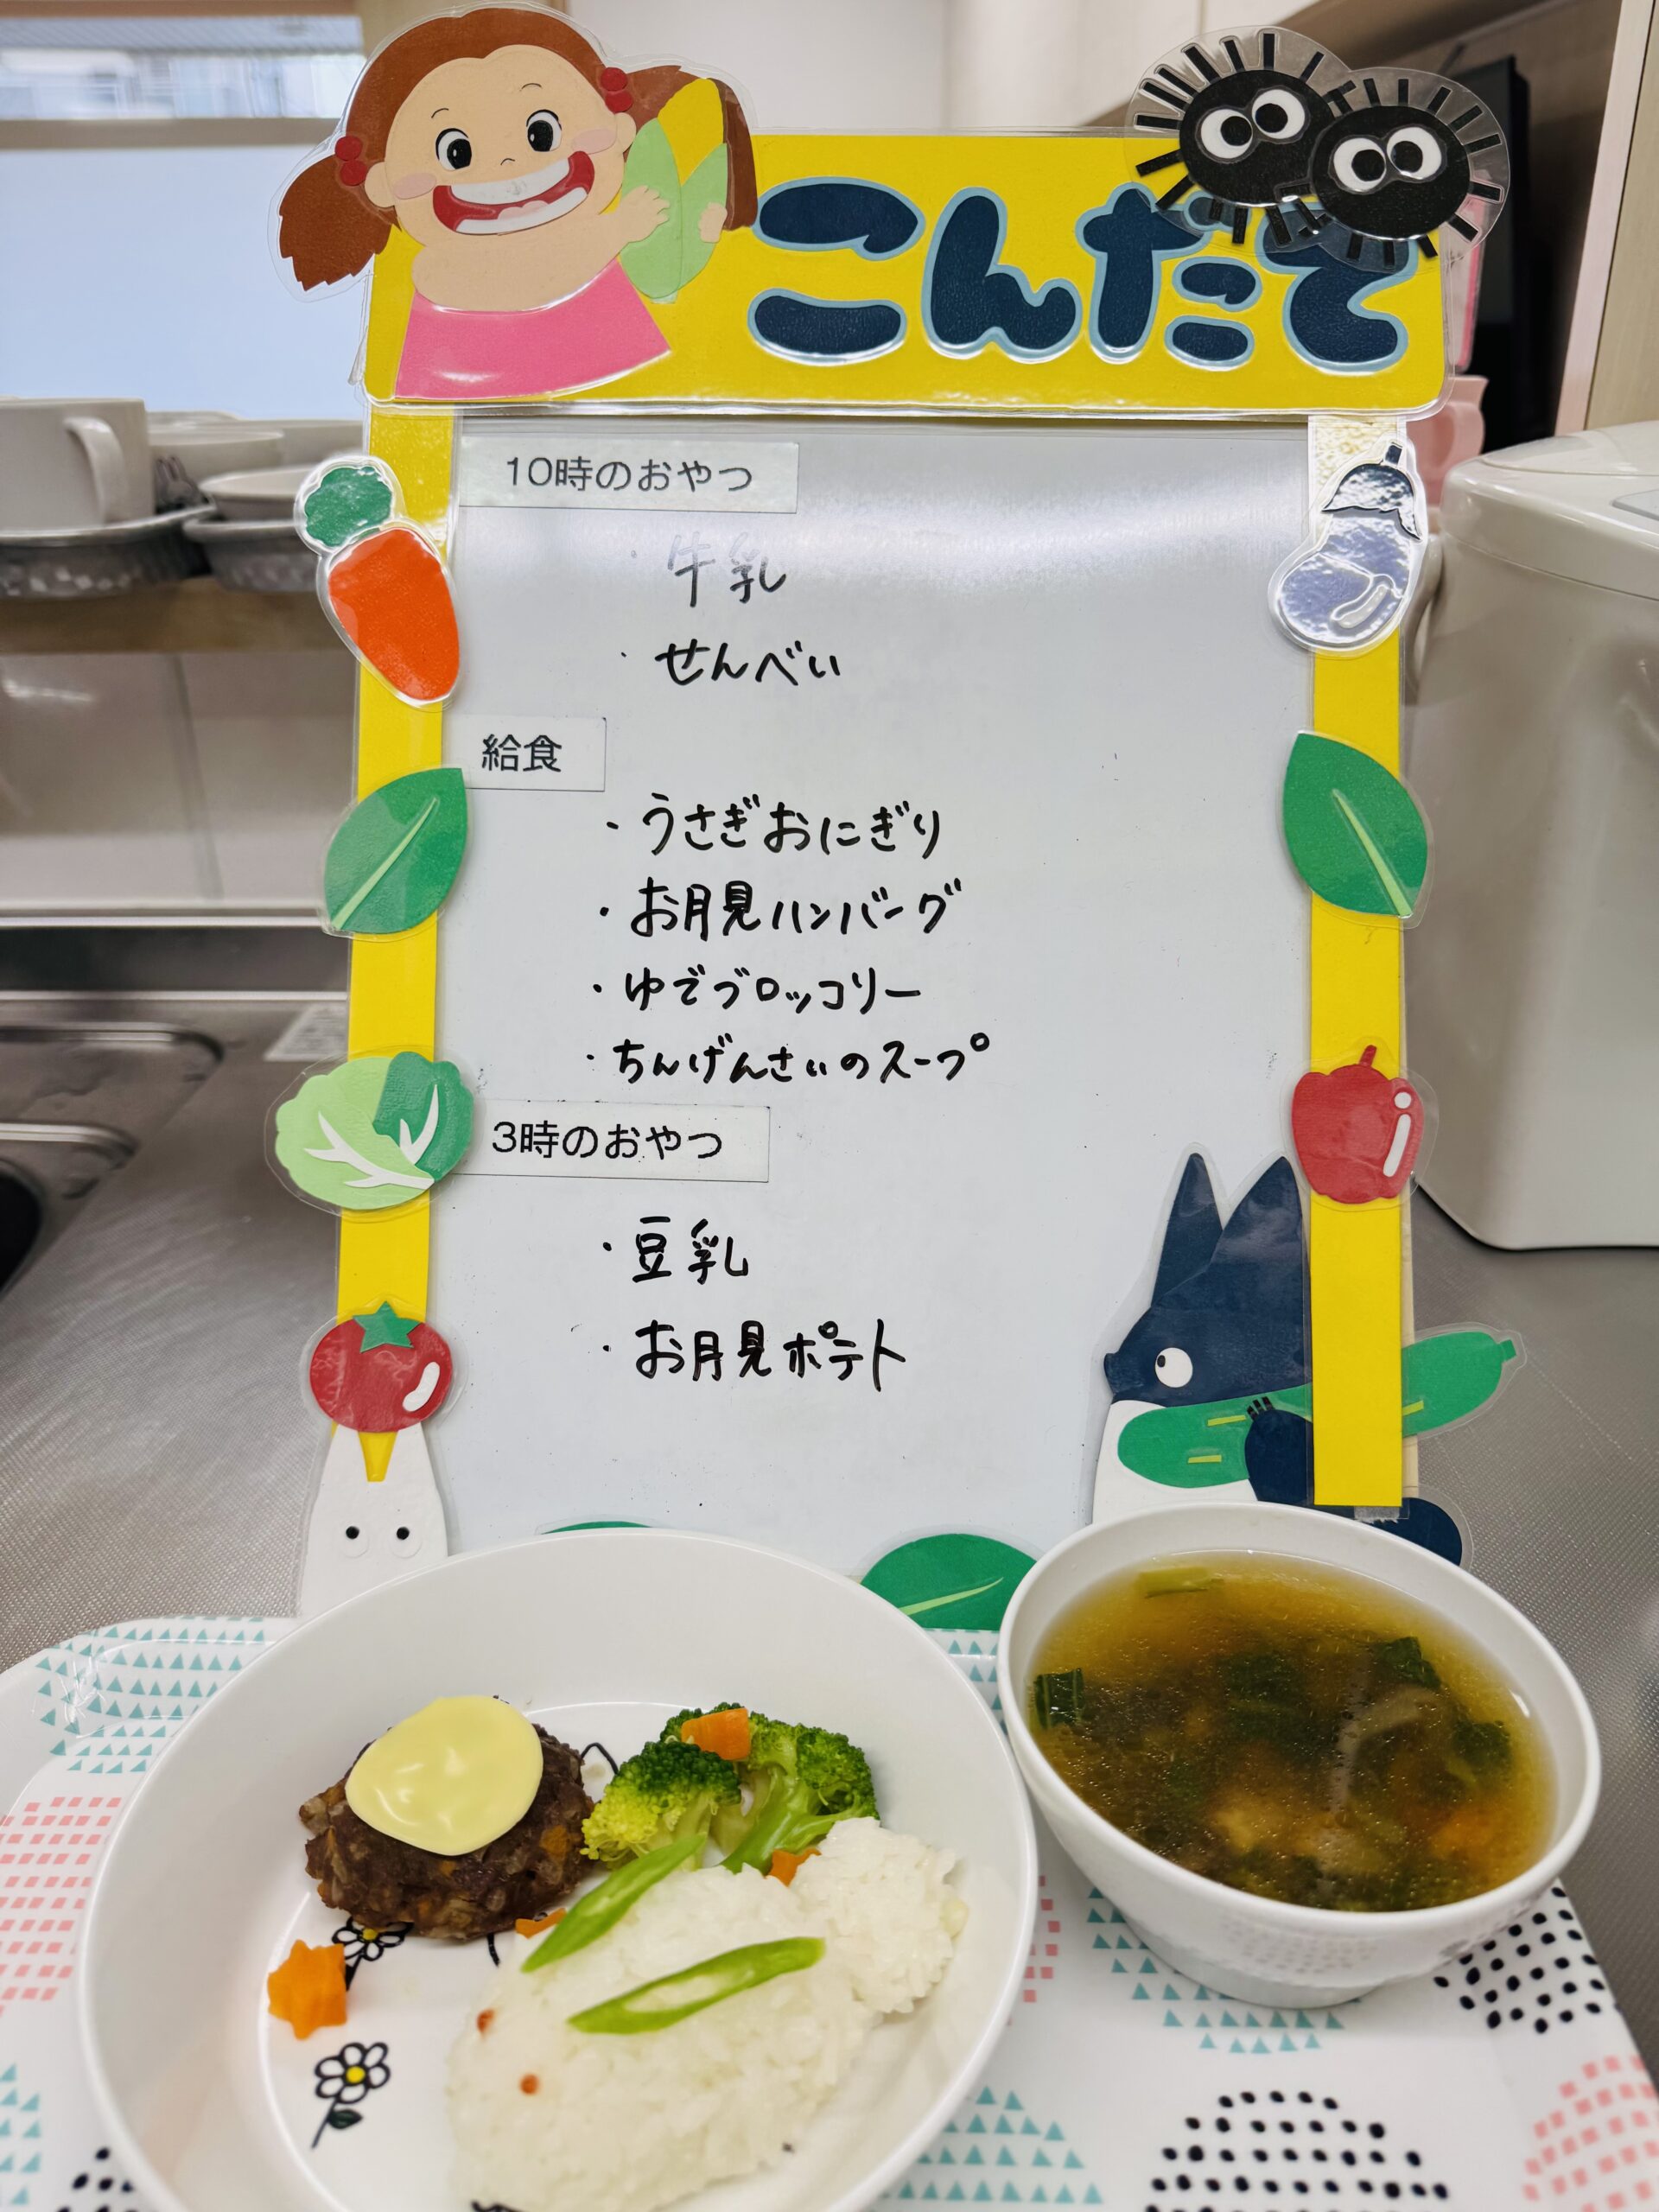 こんだて
10時のおやつ
・牛乳
・せんべい
給食
・うさぎおにぎり
・お月見ハンバーグ
・ゆでブロッコリー
・ちんげんさいのスープ
3時のおやつ
・豆乳
・お月見ポテト